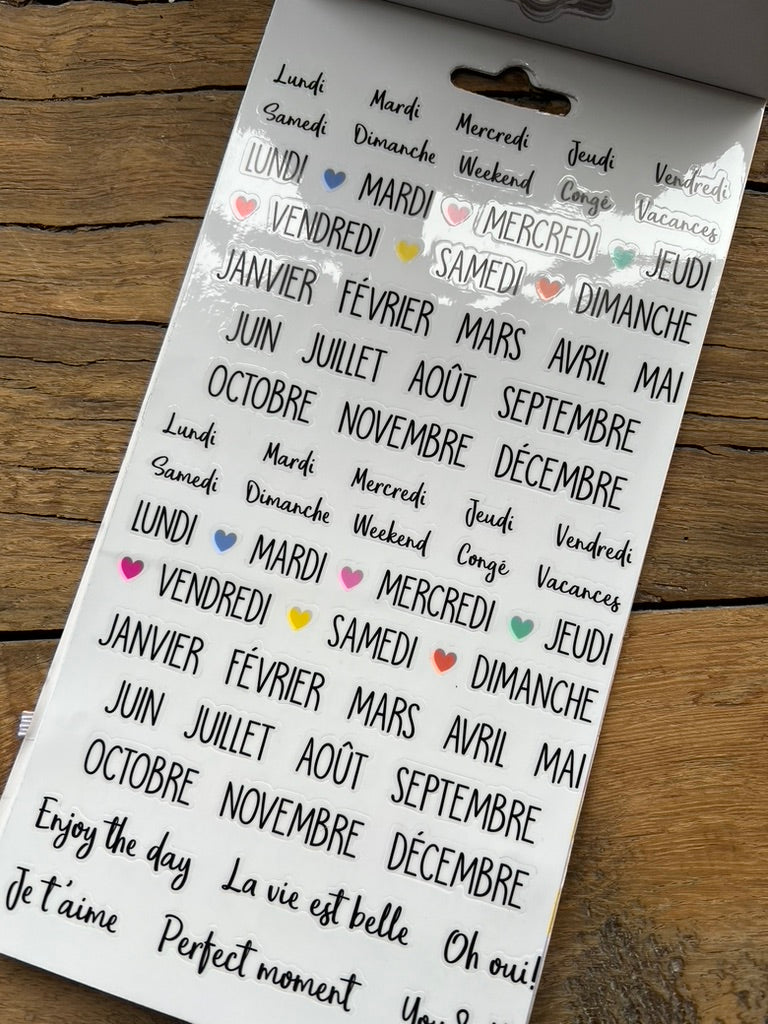 Lundi Mardi Mercredi Jeudi Vendredi
Samedi Dimanche Weekend Congé Vacances
LUNDI MARDI MERCREDI JEUDI
VENDREDI SAMEDI DIMANCHE
JANVIER FÉVRIER MARS AVRIL MAI
JUIN JUILLET AOÛT SEPTEMBRE
OCTOBRE NOVEMBRE DÉCEMBRE
Lundi Mardi Mercredi Jeudi Vendredi
Samedi Dimanche Weekend Congé Vacances
LUNDI MARDI MERCREDI JEUDI
VENDREDI SAMEDI DIMANCHE
JANVIER FÉVRIER MARS AVRIL MAI
JUIN JUILLET AOÛT SEPTEMBRE
OCTOBRE NOVEMBRE DÉCEMBRE
Enjoy the day La vie est belle Oh oui!
Je t'aime Perfect moment You &